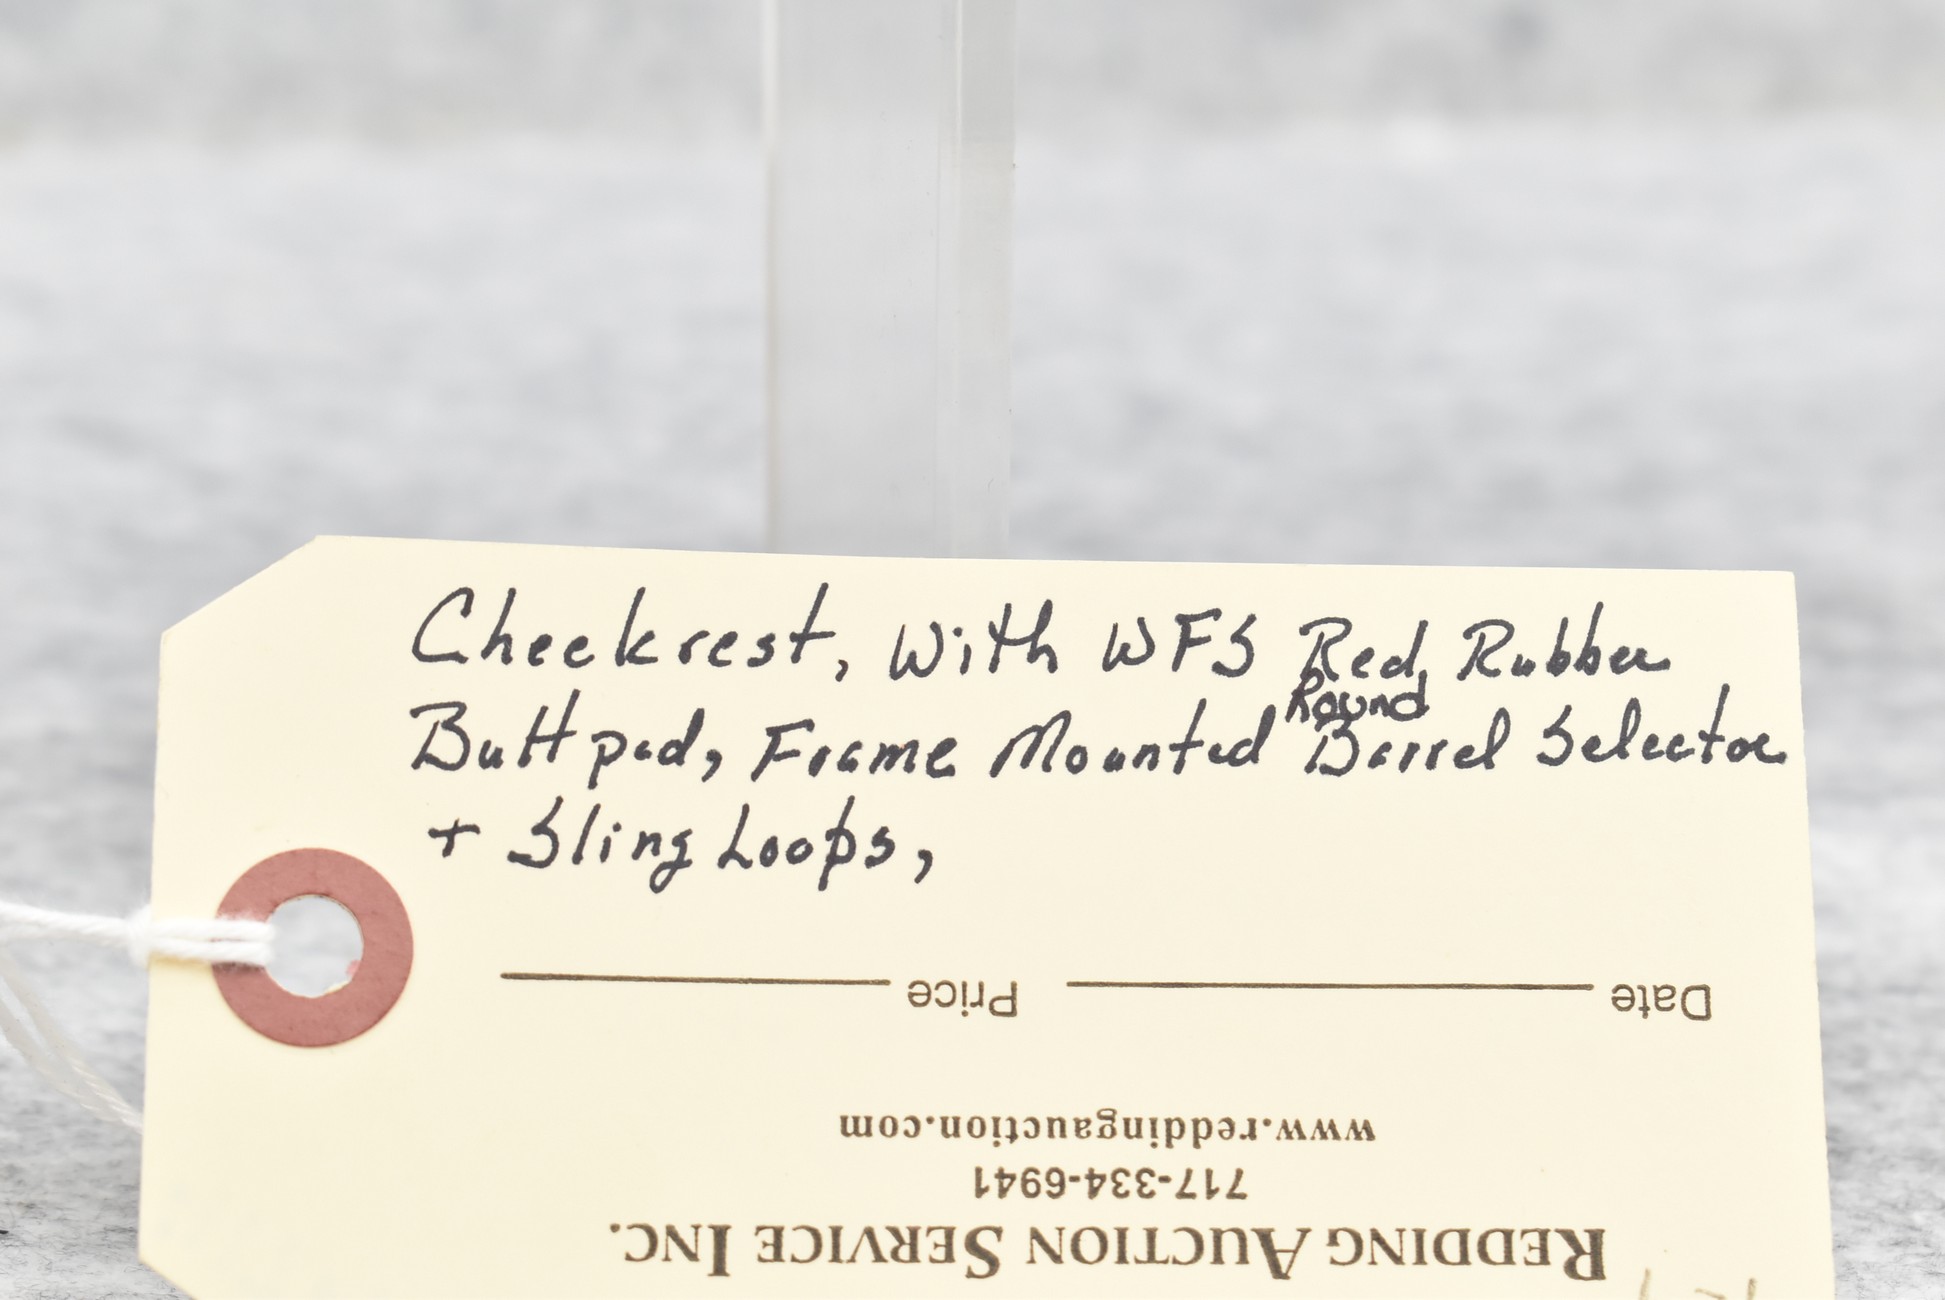 Cheekrest, With WFS Red Rubber
Round
Buttpad, Frame Mounted Barrel Selector
+ Sling Loops,
Date Price
www.reddingauction.com
717-334-6941
Redding Auction Service Inc.